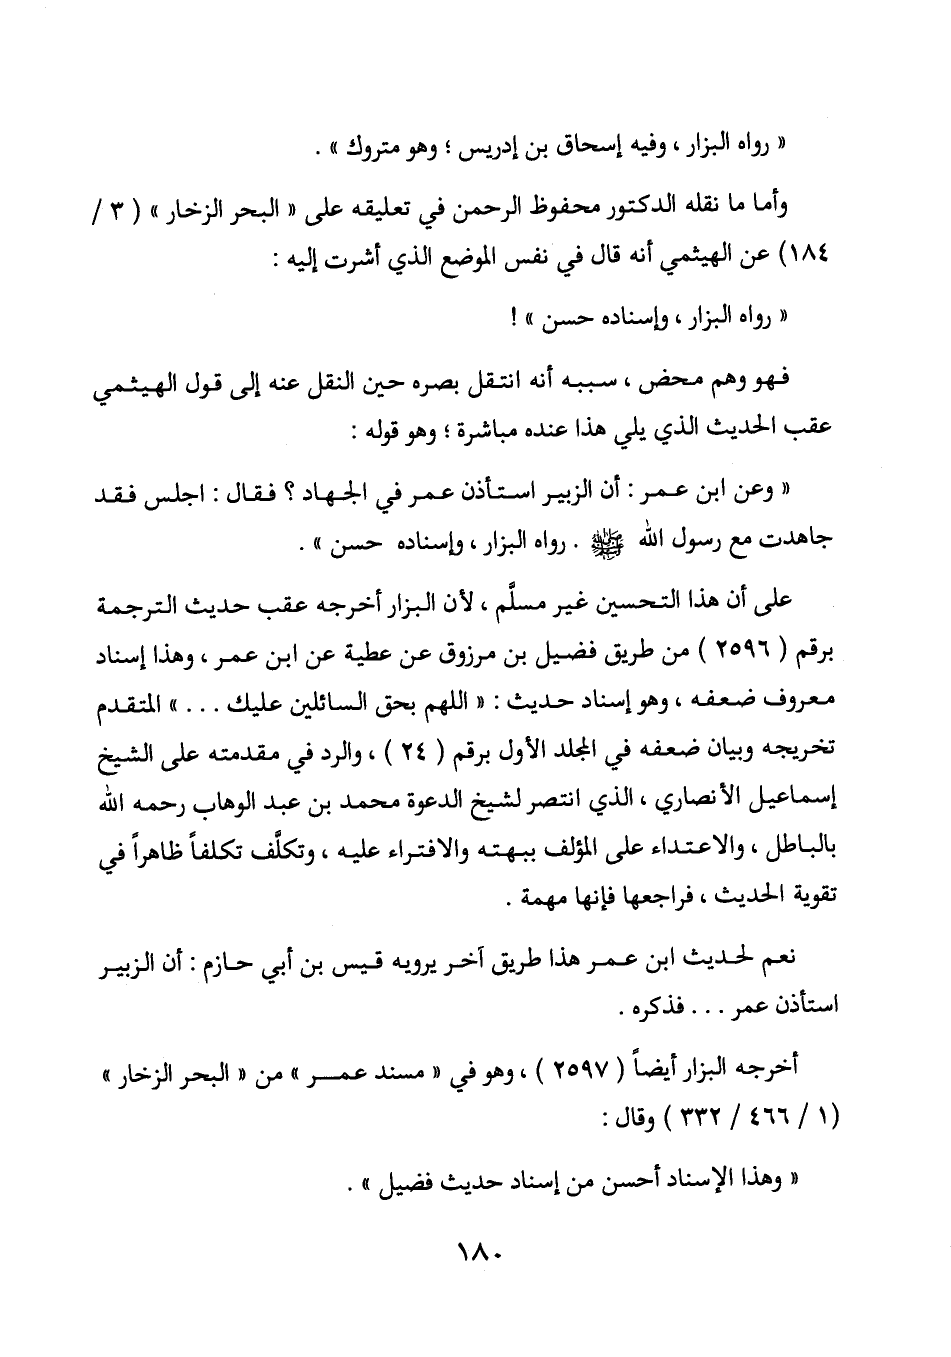 « رواه البزار ، وفيه إسحاق بن إدريس ؛ وهو متروك » .
وأما ما نقله الدكتور محفوظ الرحمن في تعليقه على « البحر الزخار » ( ٣ /
١٨٤) عن الهيثمي أنه قال في نفس الموضع الذي أشرت إليه :
« رواه البزار ، وإسناده حسن » !
فهو وهم محض ، سببه أنه انتقل بصره حين النقل عنه إلى قول الهيثمي
عقب الحديث الذي يلي هذا عنده مباشرة ؛ وهو قوله :
« وعن ابن عمر : أن الزبير استأذن عمر في الجهاد ؟ فقال : اجلس فقد
جاهدت مع رسول الله ﷺ . رواه البزار ، وإسناده حسن » .
على أن هذا التحسين غير مسلَّم ، لأن البزار أخرجه عقب حديث الترجمة
برقم ( ٢٥٩٦ ) من طريق فضيل بن مرزوق عن عطية عن ابن عمر ، وهذا إسناد
معروف ضعفه ، وهو إسناد حديث : « اللهم بحق السائلين عليك . . . » المتقدم
تخريجه وبيان ضعفه في المجلد الأول برقم ( ٢٤ ) ، والرد في مقدمته على الشيخ
إسماعيل الأنصاري ، الذي انتصر لشيخ الدعوة محمد بن عبد الوهاب رحمه الله
بالباطل ، والاعتداء على المؤلف ببهته والافتراء عليه ، وتكلَّف تكلفاً ظاهراً في
تقوية الحديث ، فراجعها فإنها مهمة .
نعم لحديث ابن عمر هذا طريق آخر يرويه قيس بن أبي حازم : أن الزبير
استأذن عمر . . . فذكره .
أخرجه البزار أيضاً ( ٢٥٩٧ ) ، وهو في « مسند عمر » من « البحر الزخار »
(١ / ٤٦٦ / ٣٣٢ ) وقال :
« وهذا الإسناد أحسن من إسناد حديث فضيل » .
١٨٠